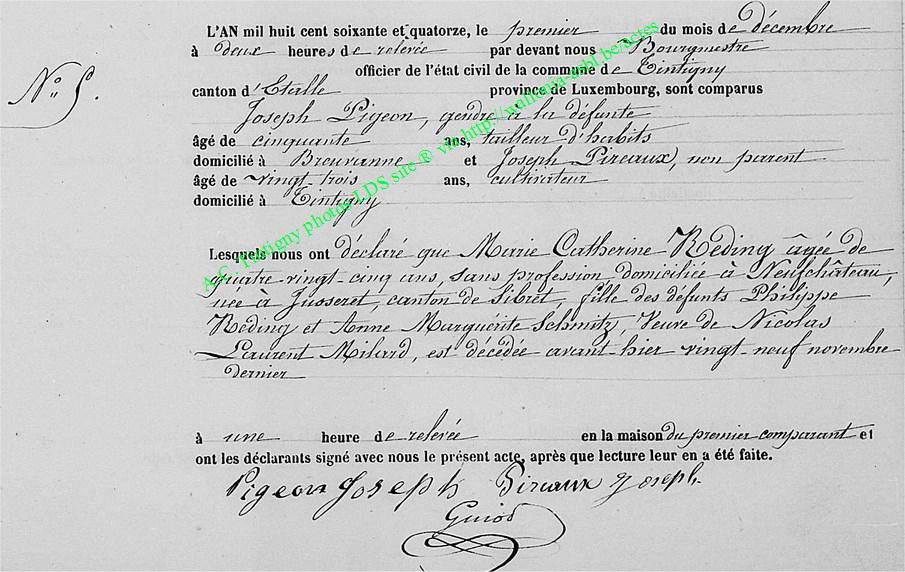 L'AN mil huit cent soixante et quatorze, le premier du mois de décembre
à deux heures de relevée par devant nous Bourgmestre
officier de l'état civil de la commune de Tintigny
N° 5.
canton d'Etalle province de Luxembourg, sont comparus
Joseph Pigeon, gendre à la défunte
âgé de cinquante ans, tailleur d'habits
domicilié à Breuvanne et Joseph Pireaux, non parent
âgé de vingt trois ans, cultivateur
domicilié à Tintigny
Lesquels nous ont déclaré que Marie Catherine Reding âgée de
quatre-vingt-cinq ans, sans profession domiciliée à Neufchâteau,
née à Jusseret, canton de Sibret, fille des défunts Philippe
Reding et Anne Marguérite Schmitz, Veuve de Nicolas
Laurent Milard, est décédée avant-hier vingt-neuf novembre
dernier
à une heure de relevée en la maison du premier comparant et
ont les déclarants signé avec nous le présent acte, après que lecture leur en a été faite.
Pigeon Joseph Pireaux Joseph
Guiot
A.C. Tintigny photos LDS site ® via http://wallonia-asbl.be/actes